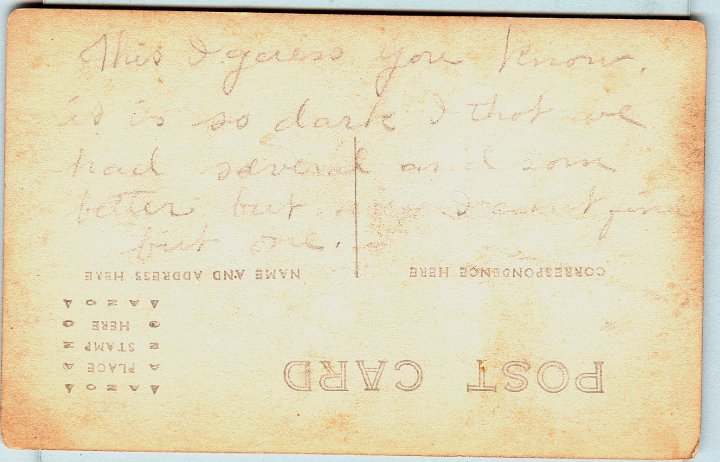 This I guess you know.
it is so dark I thot we
had several and som
better but now I cant find
but one.
NAME AND ADDRESS HERE
CORRESPONDENCE HERE
AZO
PLACE
STAMP
HERE
AZO
POST CARD